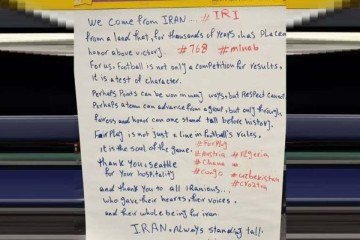 We come from IRAN... # IRI
from a land that, for thousands of years, has placed
honor above victory. #768 #minab
For us, Football is not only a competition for results,
it is a test of character.
Perhaps Points can be won in many ways, but respect cannot.
Perhaps a team can advance from a group, but only through
fairness and honor can one stand tall before history.
Fair Play is not just a line in football's rules,
it is the soul of the game. #FairPlay
thank you, seattle #Austria #Algeria
for your hospitality #Ghana
#Congo #uzbekistan
and thank you to all iranians... #Croatia
who gave their hearts, their voices,
and their whole being for iran.
IRAN, Always standing tall.